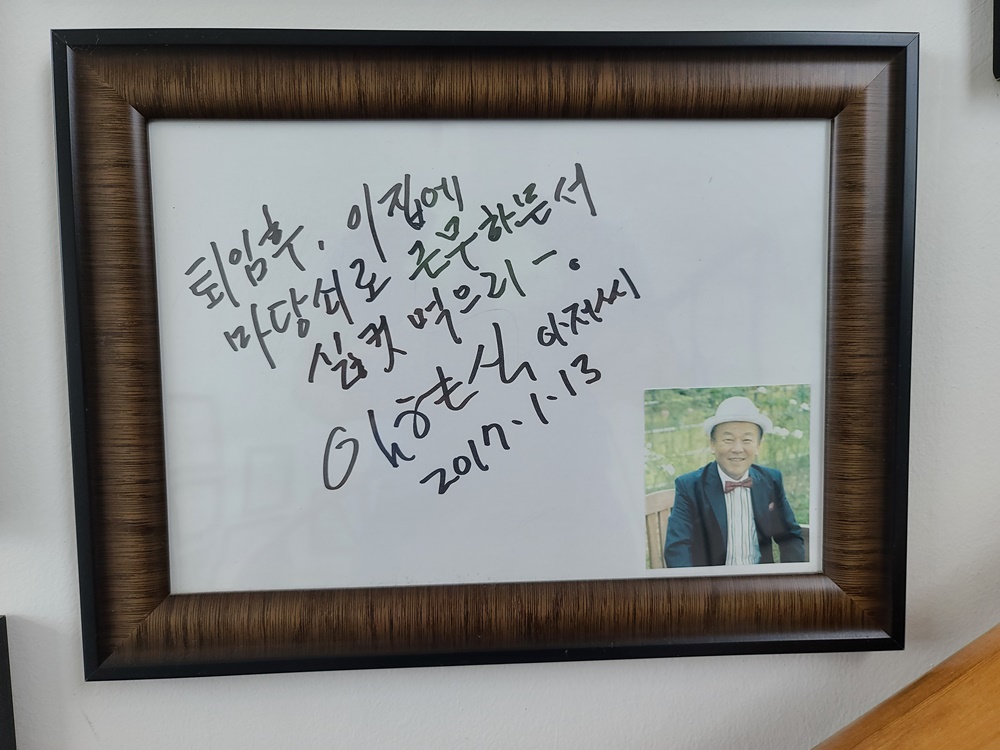 퇴임후, 이집에
마당쇠로 근무하믄서
실컷 먹으리-.
아저씨
2017.1.13